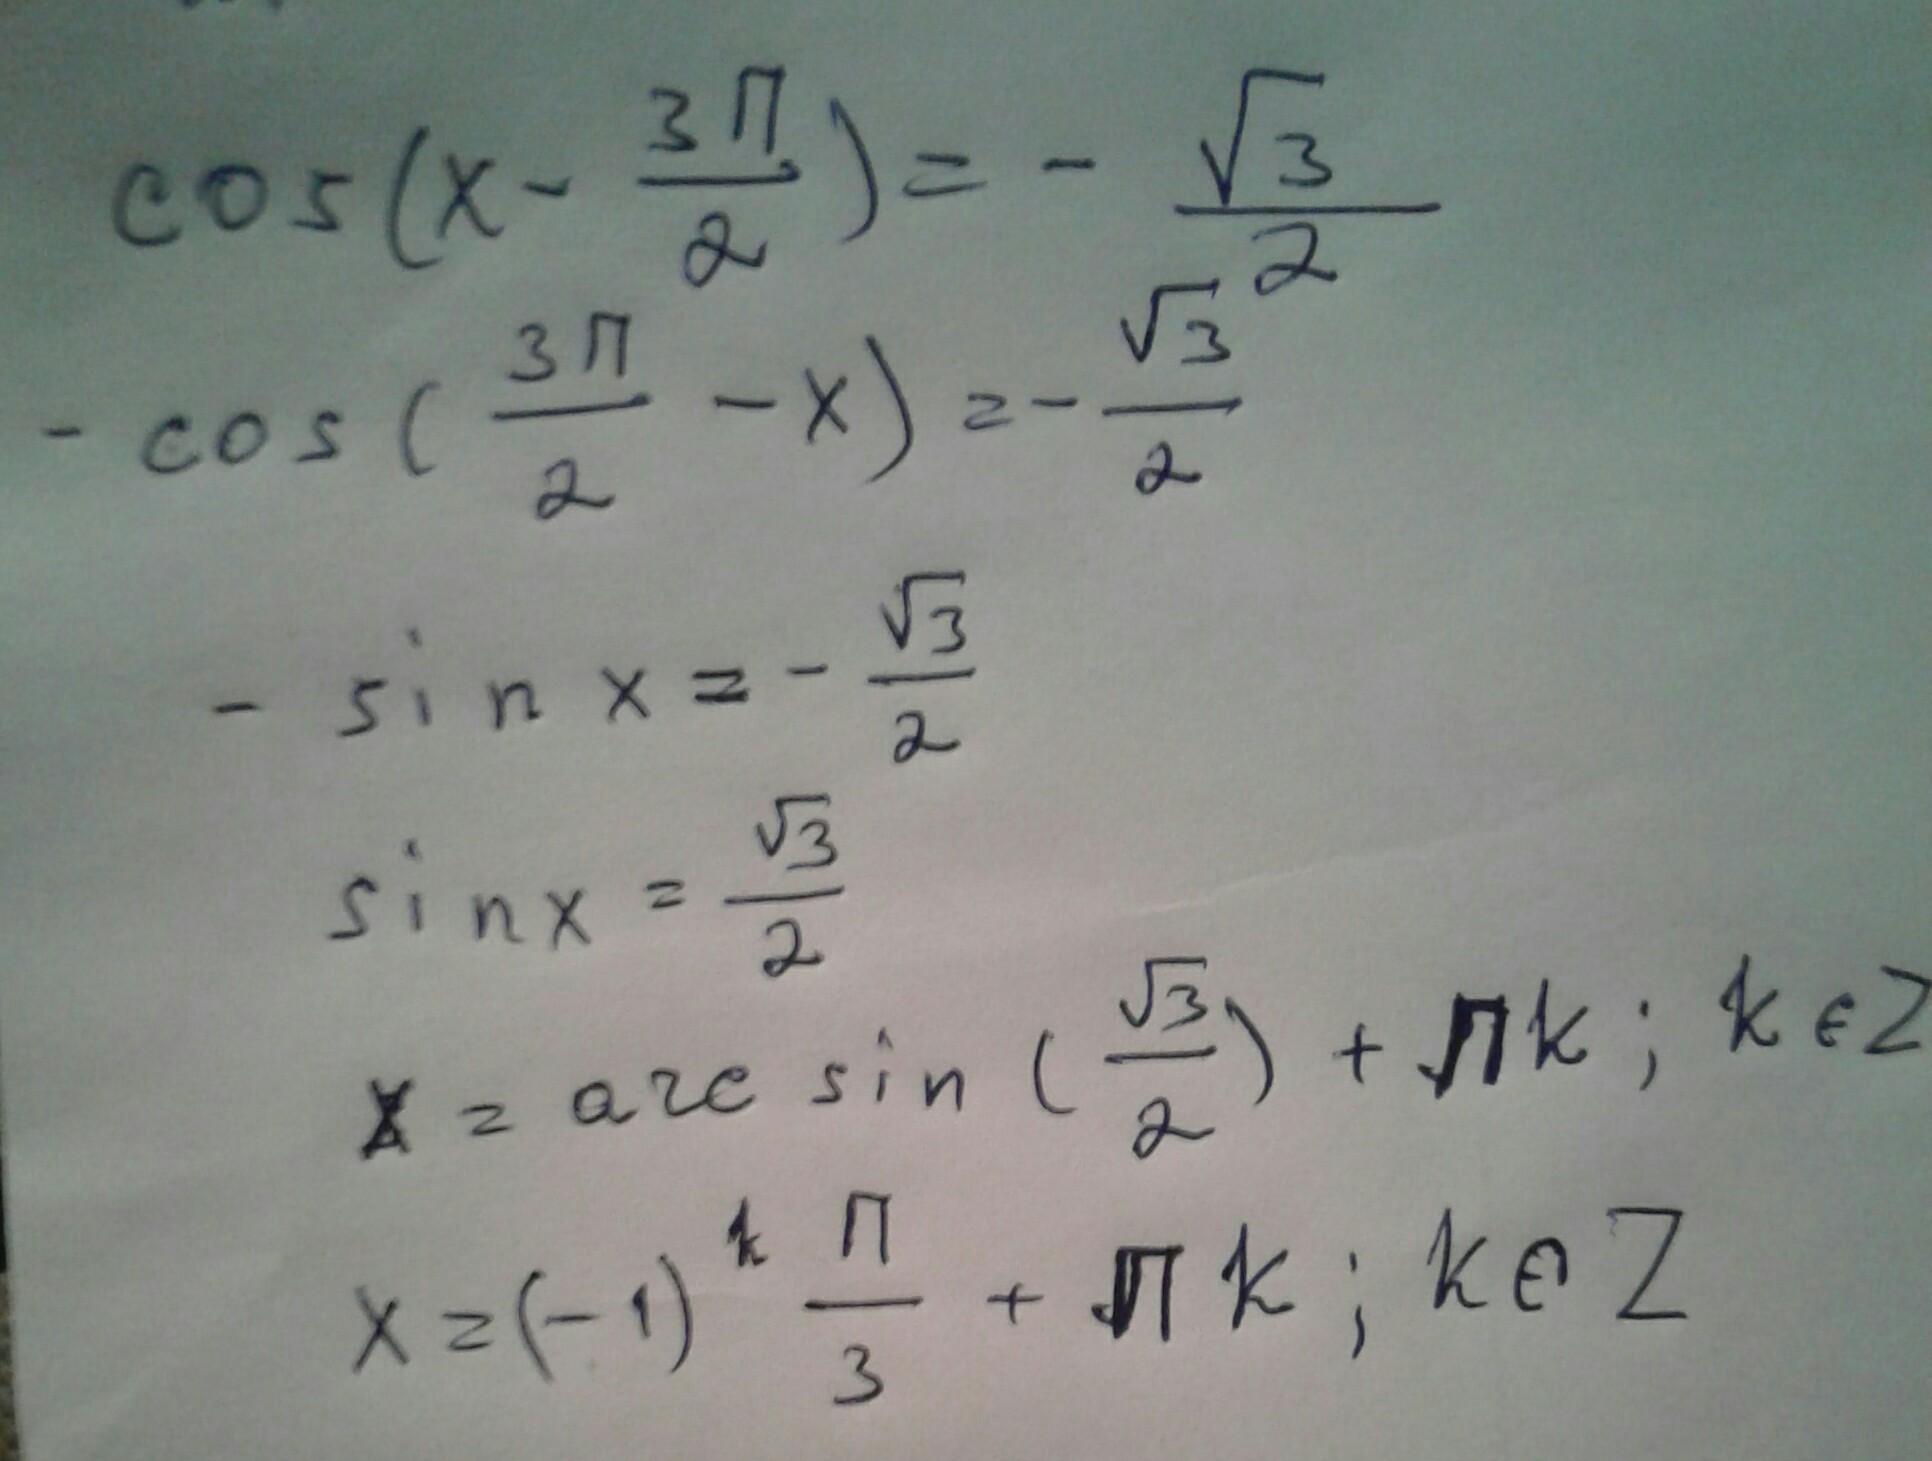 cos(x - 3π/2) = - √3/2
- cos(3π/2 - x) = - √3/2
- sin x = - √3/2
sin x = √3/2
x = arc sin(√3/2) + πk; k ∈ Z
x = (-1)^k π/3 + πk; k ∈ Z